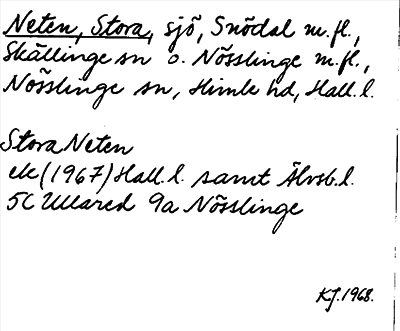 Neten, Stora, sjö, Snödal m.fl.,
Skällinge sn o. Nösslinge m.fl.,
Nösslinge sn, Himle hd, Hall. l.
Stora Neten
ek (1967) Hall. l. samt Älvsb. l.
5C Ullared 9a Nösslinge
KJ. 1968.